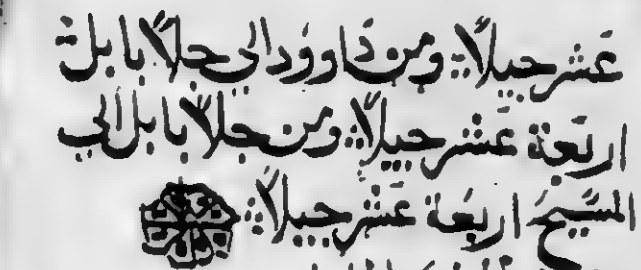 عَشر جيلاً؞ ومن دَاوود الي جلاً بابل؞
اربعَة عَشر جيلاً؞ ومن جلاً بابل الي
المسَيحَ اربعَة عَشَر جيلاً؞